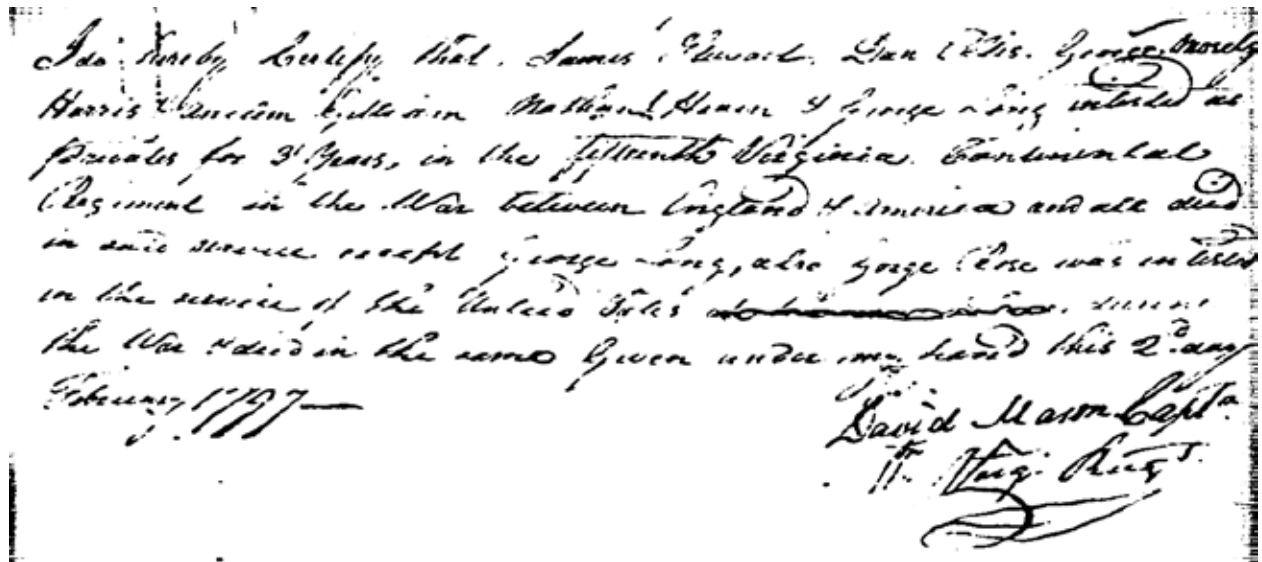 I do hereby Certify that James Stewart. Dan Ellis. George Mosely
Harris William Nathaniel & George Long inlisted as
Privates for 3 Years, in the fifteenth Virginia Continental
Regiment in the War between England & America and all died
in said service except George Long, also George Rose was inlisted
in the service of the United States
the War & died in the same Given under my hand this 2d day
February 1797
David Mason Capt.
Virg. Regt.